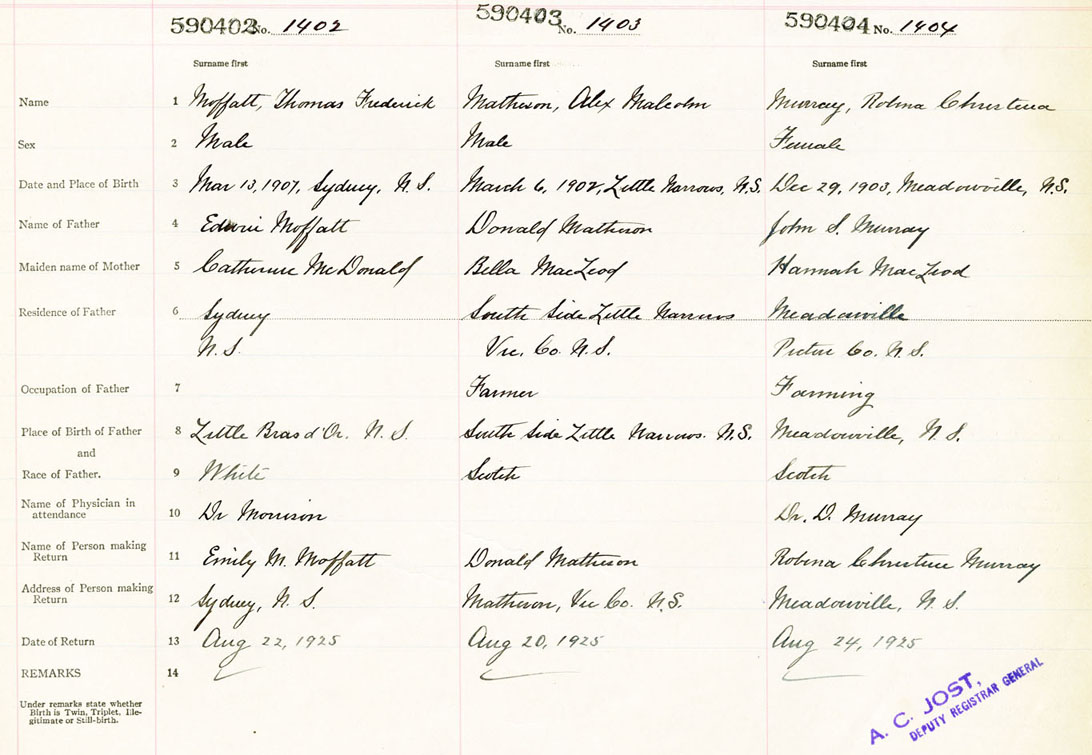 590402 No. 1402 590403 No. 1403 590404 No. 1404
Surname first Surname first Surname first
Name 1 Moffatt, Thomas Frederick Matheson, Alex Malcolm Murray, Robina Christena
Sex 2 Male Male Female
Date and Place of Birth 3 Mar 13, 1907, Sydney, N.S. March 6, 1902, Little Narrows, N.S. Dec 29, 1903, Meadowville, N.S.
Name of Father 4 Edwin Moffatt Donald Matheson John S. Murray
Maiden name of Mother 5 Catherine McDonald Bella MacLeod Hannah MacLeod
Residence of Father 6 Sydney South Side Little Narrows Meadowville
N.S. Vic. Co. N.S. Pictou Co. N.S.
Occupation of Father 7 Farmer Farming
Place of Birth of Father 8 Little Bras d'Or. N.S. South Side Little Narrows. N.S. Meadowville, N.S.
and
Race of Father. 9 White Scotch Scotch
Name of Physician in
attendance 10 Dr Morrison Dr. D. Murray
Name of Person making
Return 11 Emily M. Moffatt Donald Matheson Robena Christine Murray
Address of Person making
Return 12 Sydney, N.S. Matheson, Vic Co. N.S. Meadowville, N.S.
Date of Return 13 Aug 22, 1925 Aug 20, 1925 Aug 24, 1925
REMARKS 14
Under remarks state whether
Birth is Twin, Triplet, Ille-
gitimate or Still-birth.
A. C. JOST,
DEPUTY REGISTRAR GENERAL